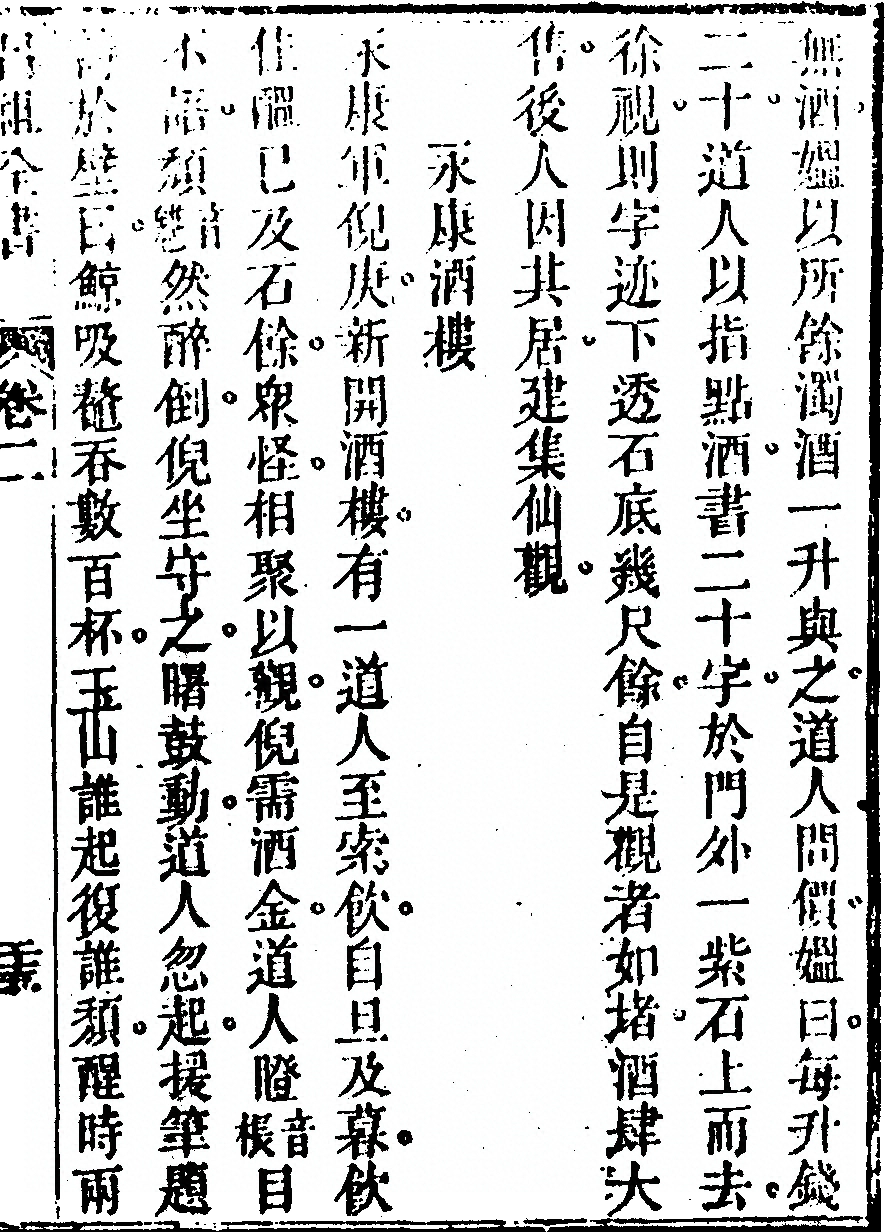 無酒媼以所餘濁酒一升與之道人問價媼曰每升錢
二十道人以指點酒書二十字於門外一紫石上而去
徐視則字迹下透石底幾尺餘自是觀者如堵酒肆大
售後人因其居建集仙觀
永康酒樓
永康軍倪庚新開酒樓有一道人至索飲自旦及暮飲
佳醞已及石餘衆怪相聚以觀倪需酒金道人瞪音棖目
不語頹然醉倒倪坐守之曙鼓動道人忽起援筆題
詩於壁曰鯨吸鼇吞數百杯玉山誰起復誰頹醒時兩
呂祖全書 卷二